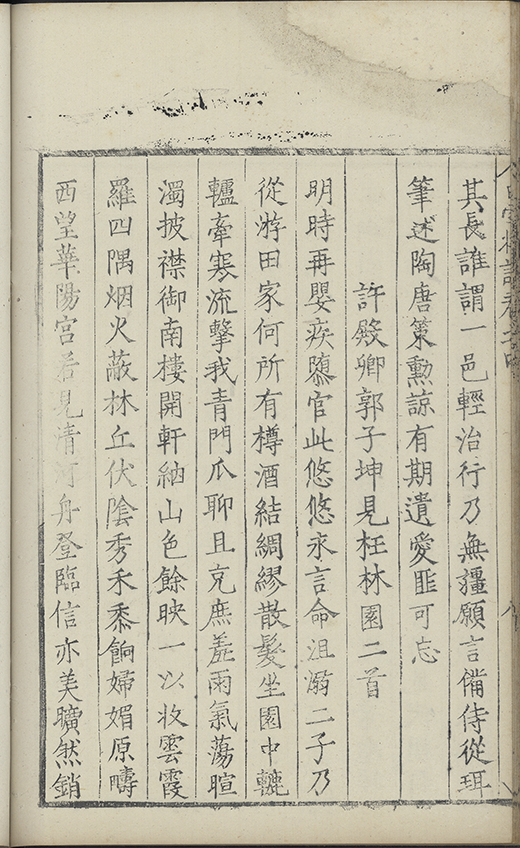 其長誰謂一邑輕治行乃無疆願言備侍從珥
筆述陶唐策勲諒有期遺愛匪可忘
許殿卿郭子坤見枉林園二首
明時再嬰疾隳官此悠悠永言命沮溺二子乃
從游田家何所有樽酒結綢繆散髮坐園中轆
轤牽寒流擊我青門瓜聊且充庶羞雨氣蕩暄
濁披襟御南樓開軒納山色餘映一以收雲霞
羅四隅烟火蔽林丘伏陰秀禾黍餉婦媚原疇
西望華陽宮若見清河舟登臨信亦美曠然銷